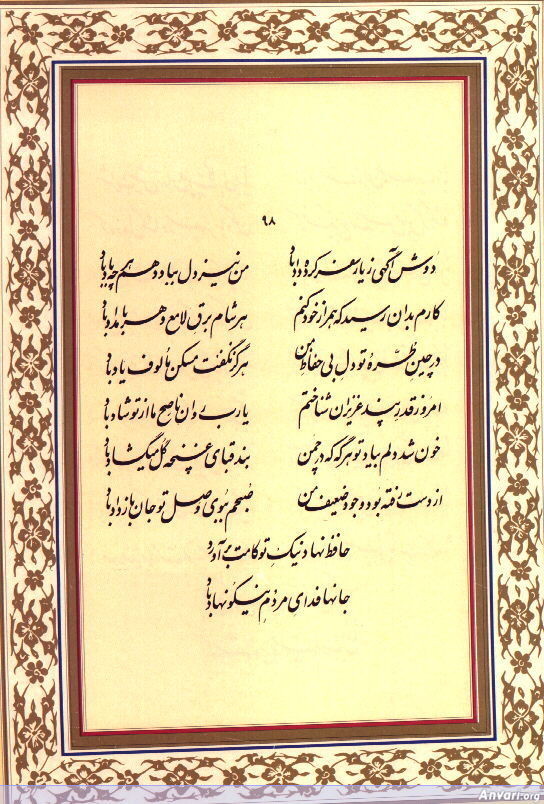 ۹۸
دوش آگهی ز یار سفر کرده داد باد من نیز دل بباد دهم هرچه باد باد
کارم بدان رسید که همراز خود کنم هر شام برق لامع و هر بامداد باد
در چین طره تو دل بی حفاظ من هرگز نگفت مسکن مالوف یاد باد
امروز قدر پند عزیزان شناختم یارب روان ناصح ما از تو شاد باد
خون شد دلم بیاد تو هرگه که در چمن بند قبای غنچه گل میگشاد باد
از دست رفته بود وجود ضعیف من صبحم ببوی وصل تو جان باز داد باد
حافظ نهاد نیک تو کامت برآورد
جانها فدای مردم نیکو نهاد باد
Anvari.org